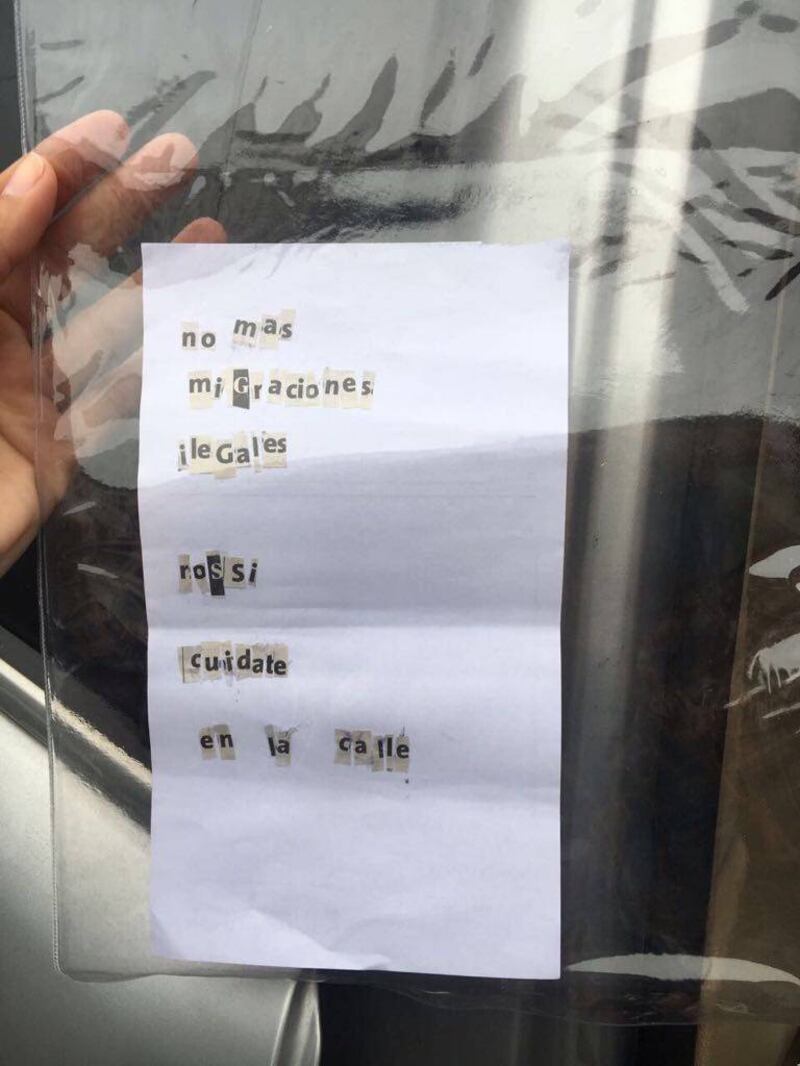 no mas
miGraciones
ileGales
rossi
cuidate
en la calle